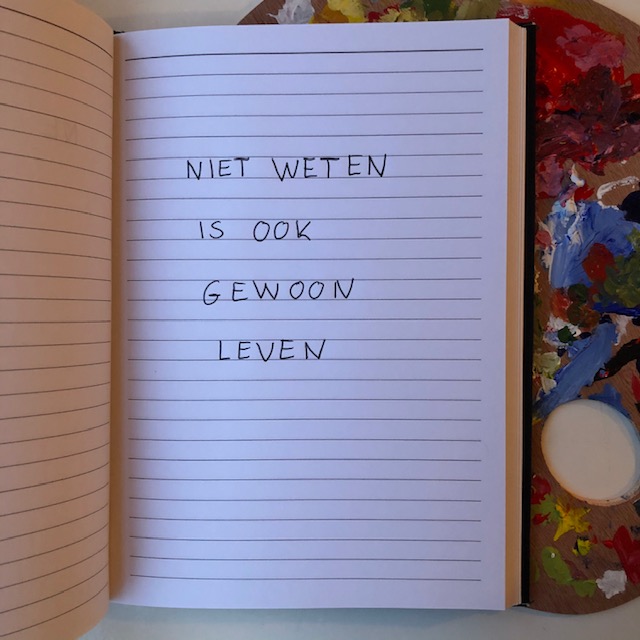 NIET WETEN
IS OOK
GEWOON
LEVEN